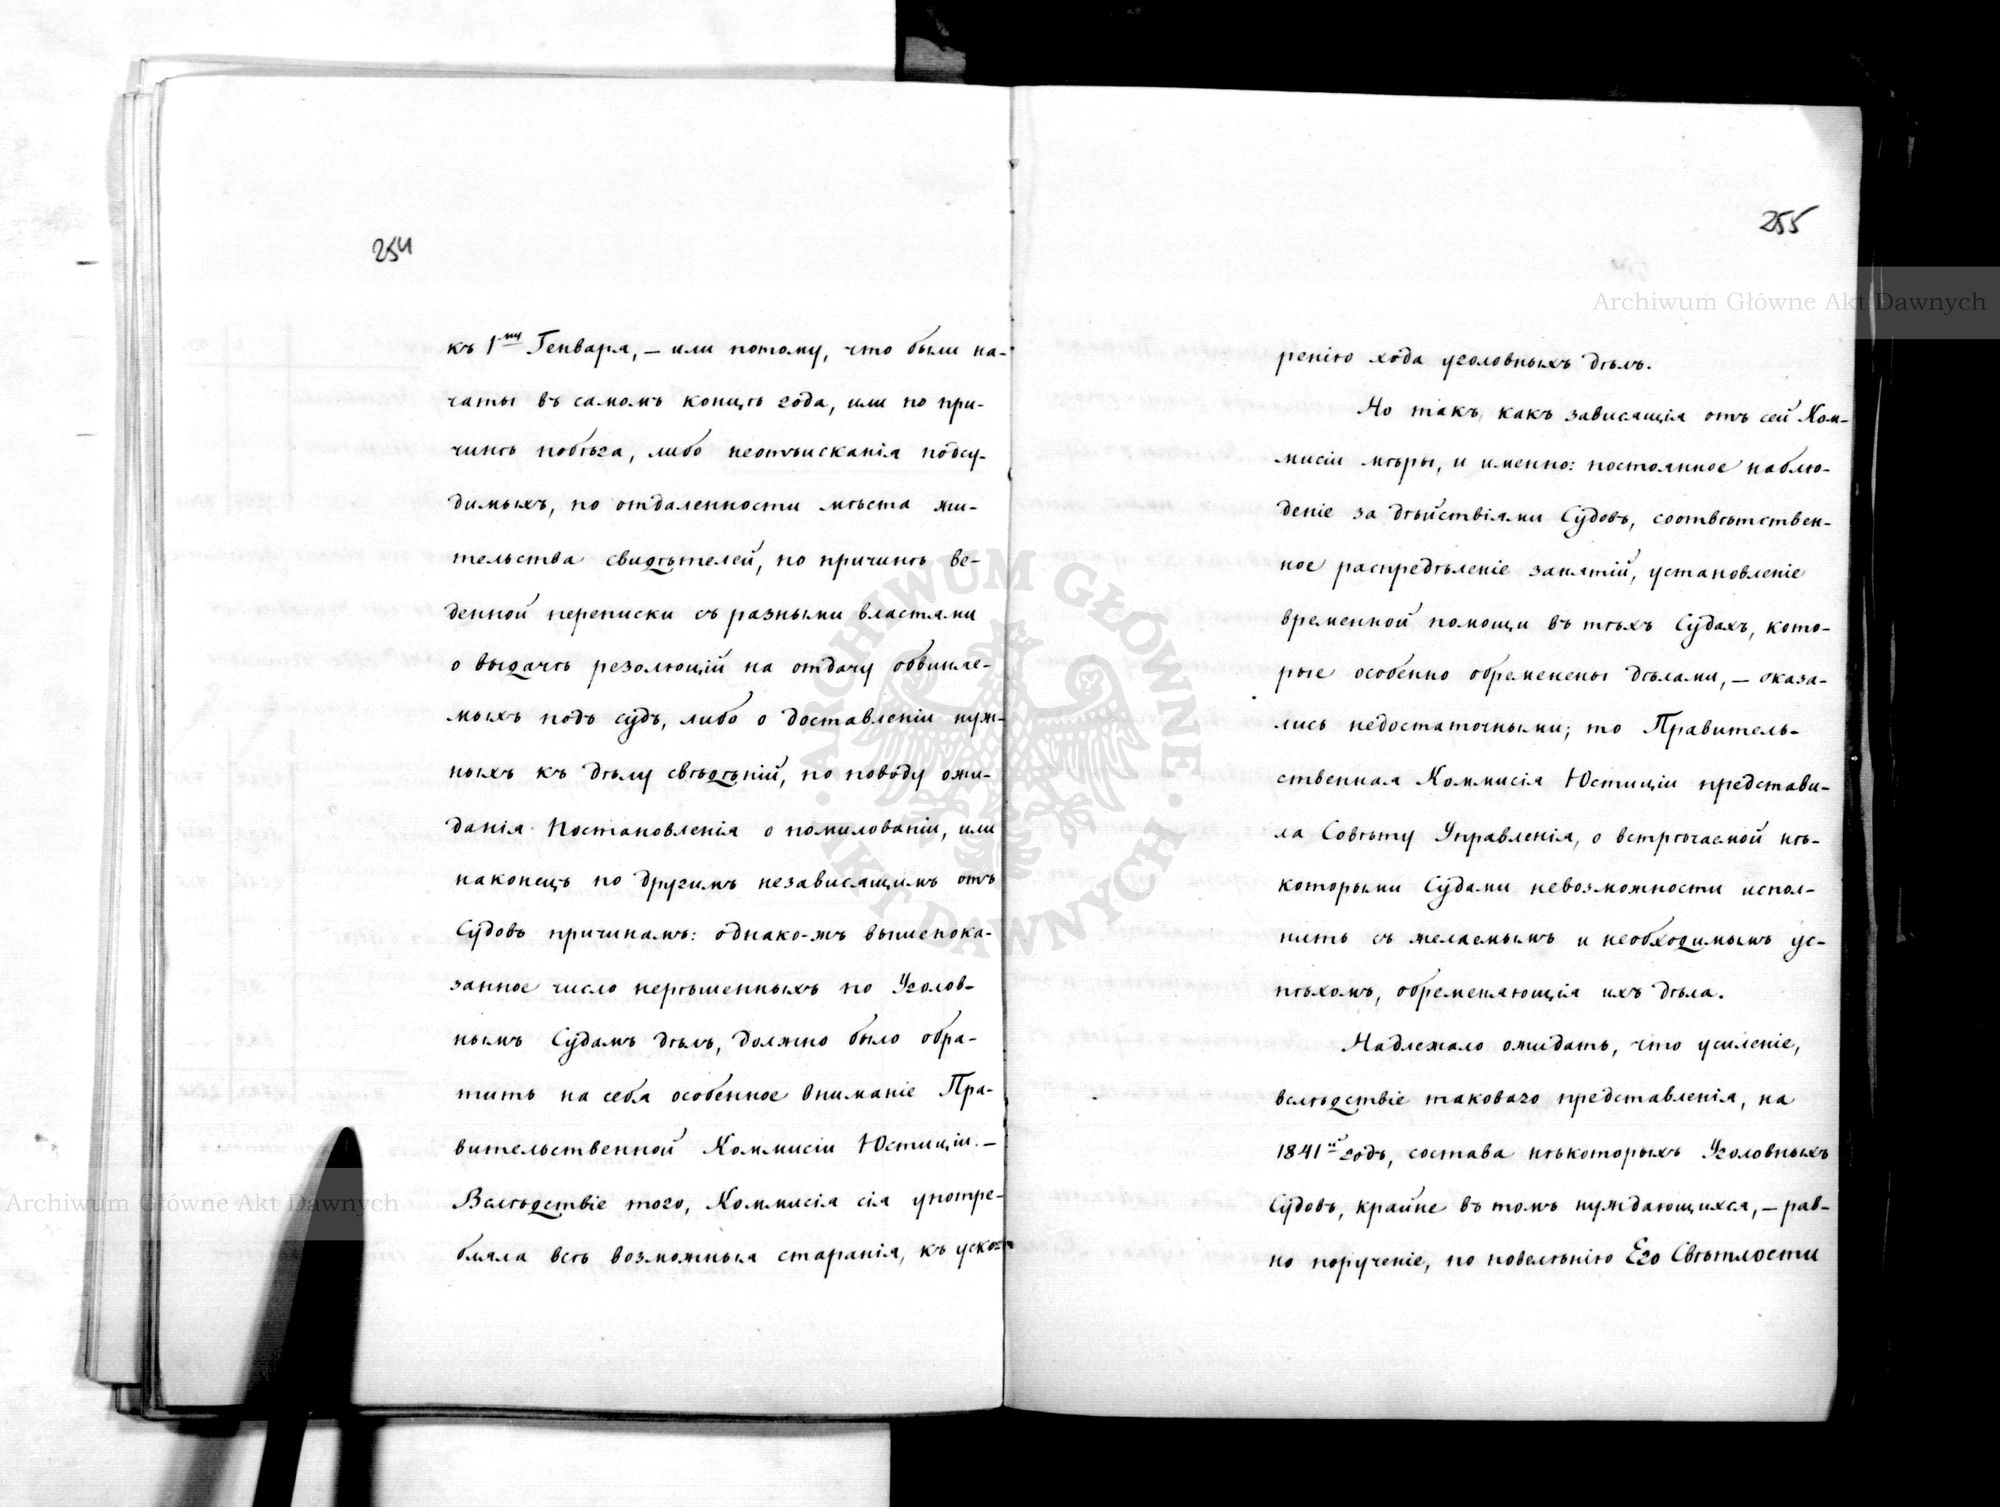 254
къ 1му Генваря, — или потому, что были на-
чаты въ самомъ концѣ года, или по при-
чинѣ побѣга, либо неотъисканія подсу-
димыхъ, по отдаленности мѣста жи-
тельства свидѣтелей, по причинѣ ве-
денной переписки съ разными властями
о выдачѣ резолюцій на отдачу обвиняе-
мыхъ подъ судъ, либо о доставленіи нуж-
ныхъ къ дѣлу свѣдѣній, по поводу ожи-
данія Постановленія о помилованіи, или
наконецъ по другимъ независящимъ отъ
Судовъ причинамъ: однако-жъ вышепока-
занное число нерѣшенныхъ по Уголов-
нымъ Судамъ дѣлъ, должно было обра-
тить на себя особенное вниманіе Пра-
вительственной Коммисіи Юстиціи. —
Вслѣдствіе того, Коммисія сія употре-
бляла всѣ возможныя старанія, къ уско-
255
ренію хода уголовныхъ дѣлъ.
Но такъ, какъ зависящія отъ сей Ком-
мисіи мѣры, и именно: постоянное наблю-
деніе за дѣйствіями Судовъ, соотвѣтствен-
ное распредѣленіе занятій, установленіе
временной помощи въ тѣхъ Судахъ, кото-
рые особенно обременены дѣлами, — оказа-
лись недостаточными; то Правитель-
ственная Коммисія Юстиціи представи-
ла Совѣту Управленія, о встрѣчаемой нѣ-
которыми Судами невозможности испол-
нить съ желаемымъ и необходимымъ ус-
пѣхомъ, обременяющія ихъ дѣла.
Надлежало ожидать, что усиленіе,
вслѣдствіе таковаго представленія, на
1841й годъ, состава нѣкоторыхъ Уголовныхъ
Судовъ, крайне въ томъ нуждающихся, — рав-
но порученіе, по повелѣнію Его Свѣтлости
Archiwum Główne Akt Dawnych
Archiwum Główne Akt Dawnych
ARCHIWUM GŁÓWNE
AKT DAWNYCH